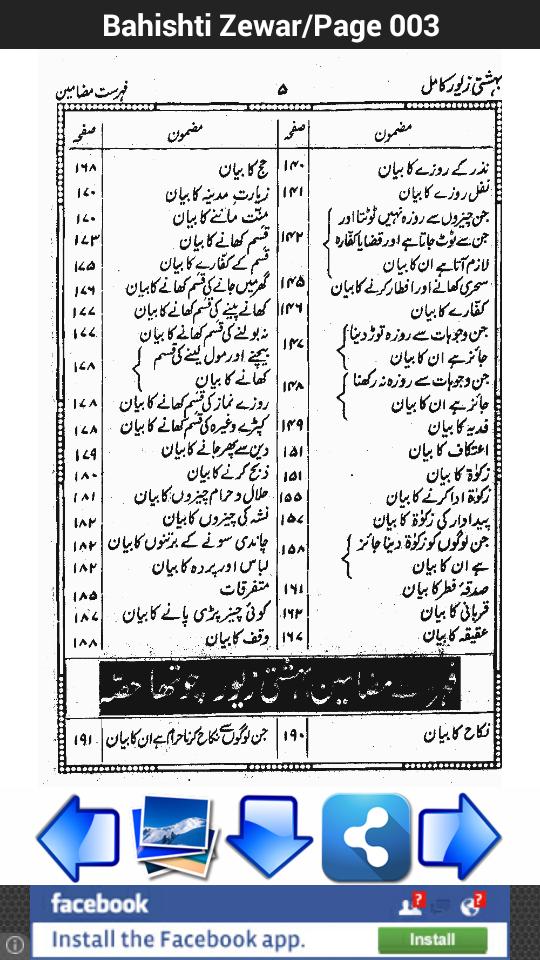 Bahishti Zewar/Page 003
بہشتی زیور کامل ۵ فہرست مضامین
مضمون صفحہ
نذر کے روزے کا بیان ۱۴۰
نفل روزے کا بیان ۱۴۱
جن چیزوں سے روزہ نہیں ٹوٹتا اور
جن سے ٹوٹ جاتا ہے اور قضا یا کفارہ ۱۴۲
لازم آتا ہے ان کا بیان
سحری کھانے اور افطار کرنے کا بیان ۱۴۵
کفارے کا بیان ۱۴۶
جن وجوہات سے روزہ توڑ دینا ۱۴۷
جائز ہے ان کا بیان
جن وجوہات سے روزہ نہ رکھنا ۱۴۸
جائز ہے ان کا بیان
فدیہ کا بیان ۱۴۹
اعتکاف کا بیان ۱۵۱
زکوٰۃ کا بیان ۱۵۱
زکوٰۃ ادا کرنے کا بیان ۱۵۵
پیداوار کی زکوٰۃ کا بیان ۱۵۷
جن لوگوں کو زکوٰۃ دینا جائز ۱۵۸
ہے ان کا بیان
صدقۂ فطر کا بیان ۱۶۱
قربانی کا بیان ۱۶۲
عقیقہ کا بیان ۱۶۷
مضمون صفحہ
حج کا بیان ۱۶۸
زیارت مدینہ کا بیان ۱۷۰
منّت ماننے کا بیان ۱۷۰
قسم کھانے کا بیان ۱۷۳
قسم کے کفارے کا بیان ۱۷۵
گھر میں جانے کی قسم کھانے کا بیان ۱۷۶
کھانے پینے کی قسم کھانے کا بیان ۱۷۷
نہ بولنے کی قسم کھانے کا بیان ۱۷۷
بیچنے اور مول لینے کی قسم ۱۷۸
کھانے کا بیان
روزے نماز کی قسم کھانے کا بیان ۱۷۸
کپڑے وغیرہ کی قسم کھانے کا بیان ۱۷۸
دین سے پھر جانے کا بیان ۱۷۹
ذبح کرنے کا بیان ۱۸۰
حلال و حرام چیزوں کا بیان ۱۸۱
نشہ کی چیزوں کا بیان ۱۸۲
چاندی سونے کے برتنوں کا بیان ۱۸۲
لباس اور پردہ کا بیان ۱۸۲
متفرقات ۱۸۵
کوئی چیز پڑی پانے کا بیان ۱۸۷
وقف کا بیان ۱۸۸
فہرست مضامین بہشتی زیور چوتھا حصّہ
نکاح کا بیان ۱۹۰
جن لوگوں سے نکاح کرنا حرام ہے ان کا بیان ۱۹۱
facebook
Install the Facebook app.
Install